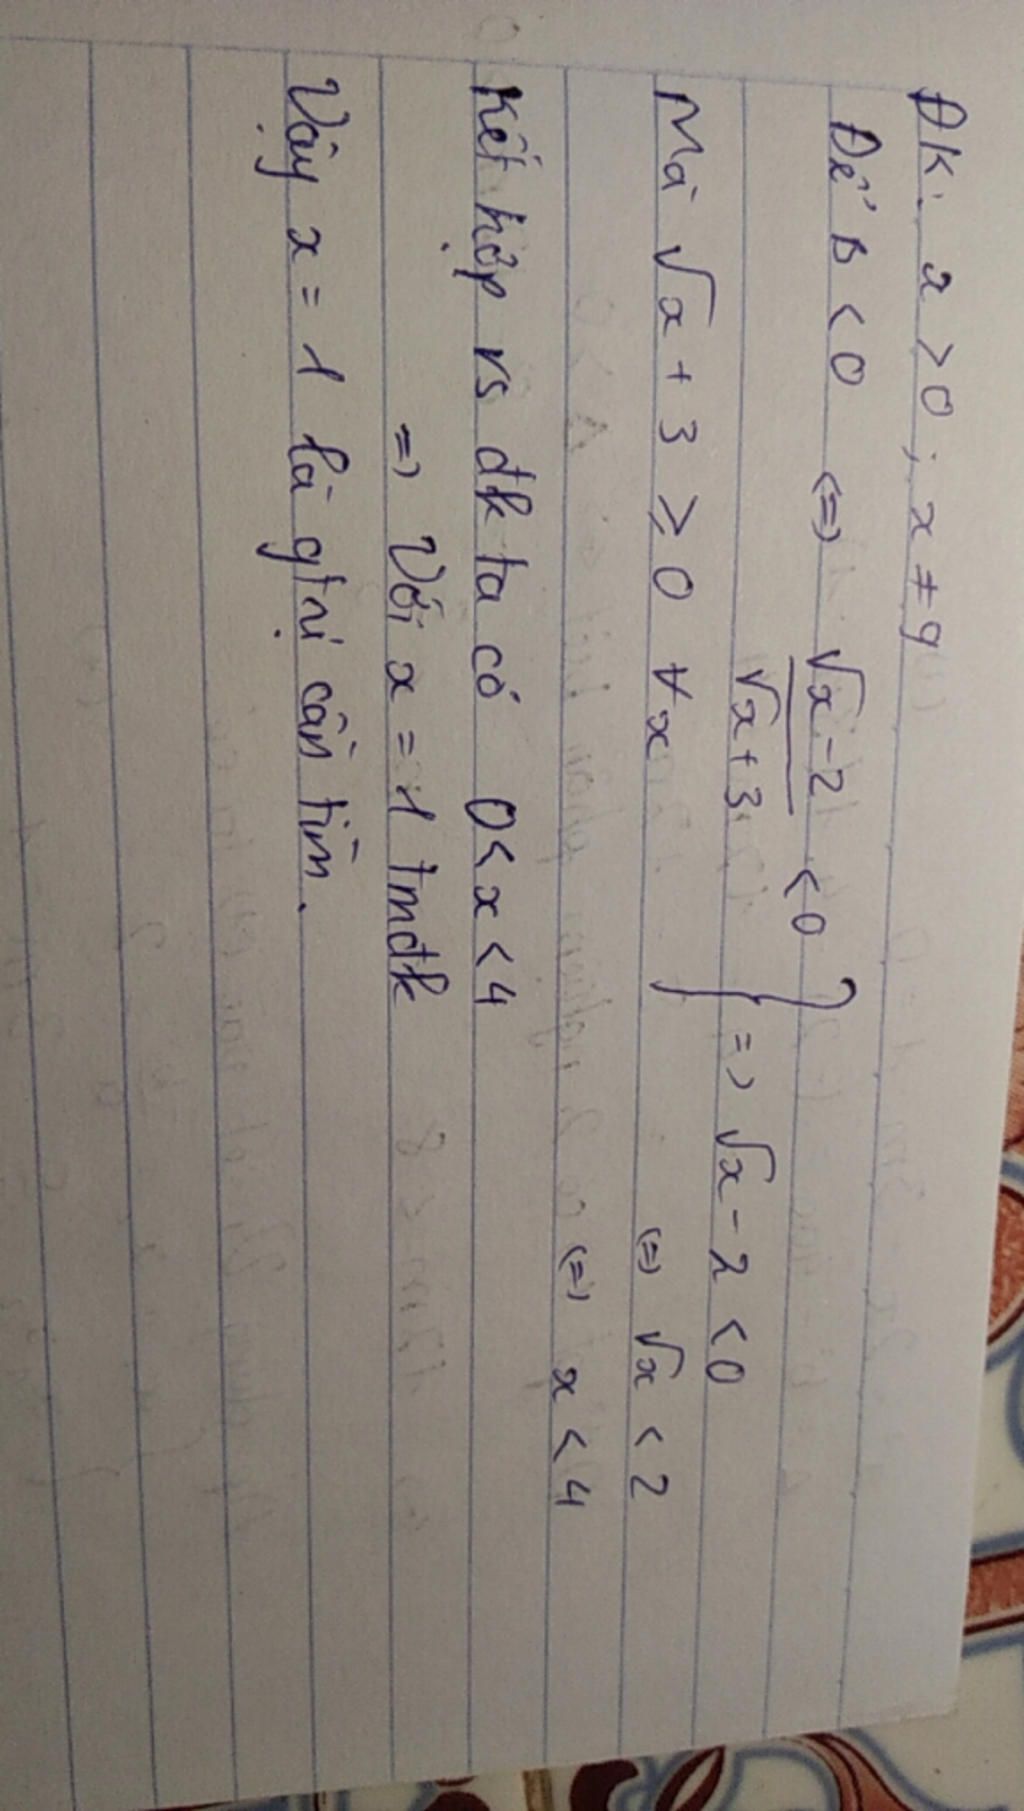 ĐK: x > 0 ; x ≠ 9
Để B < 0 <=> √x - 2 / √x + 3 < 0
=> √x - 2 < 0
Mà √x + 3 ≥ 0 ∀x
<=> √x < 2
<=> x < 4
Kết hợp vs đk ta có 0 < x < 4
=> Với x = 1 tmđk
Vậy x = 1 là gtrị cần tìm.